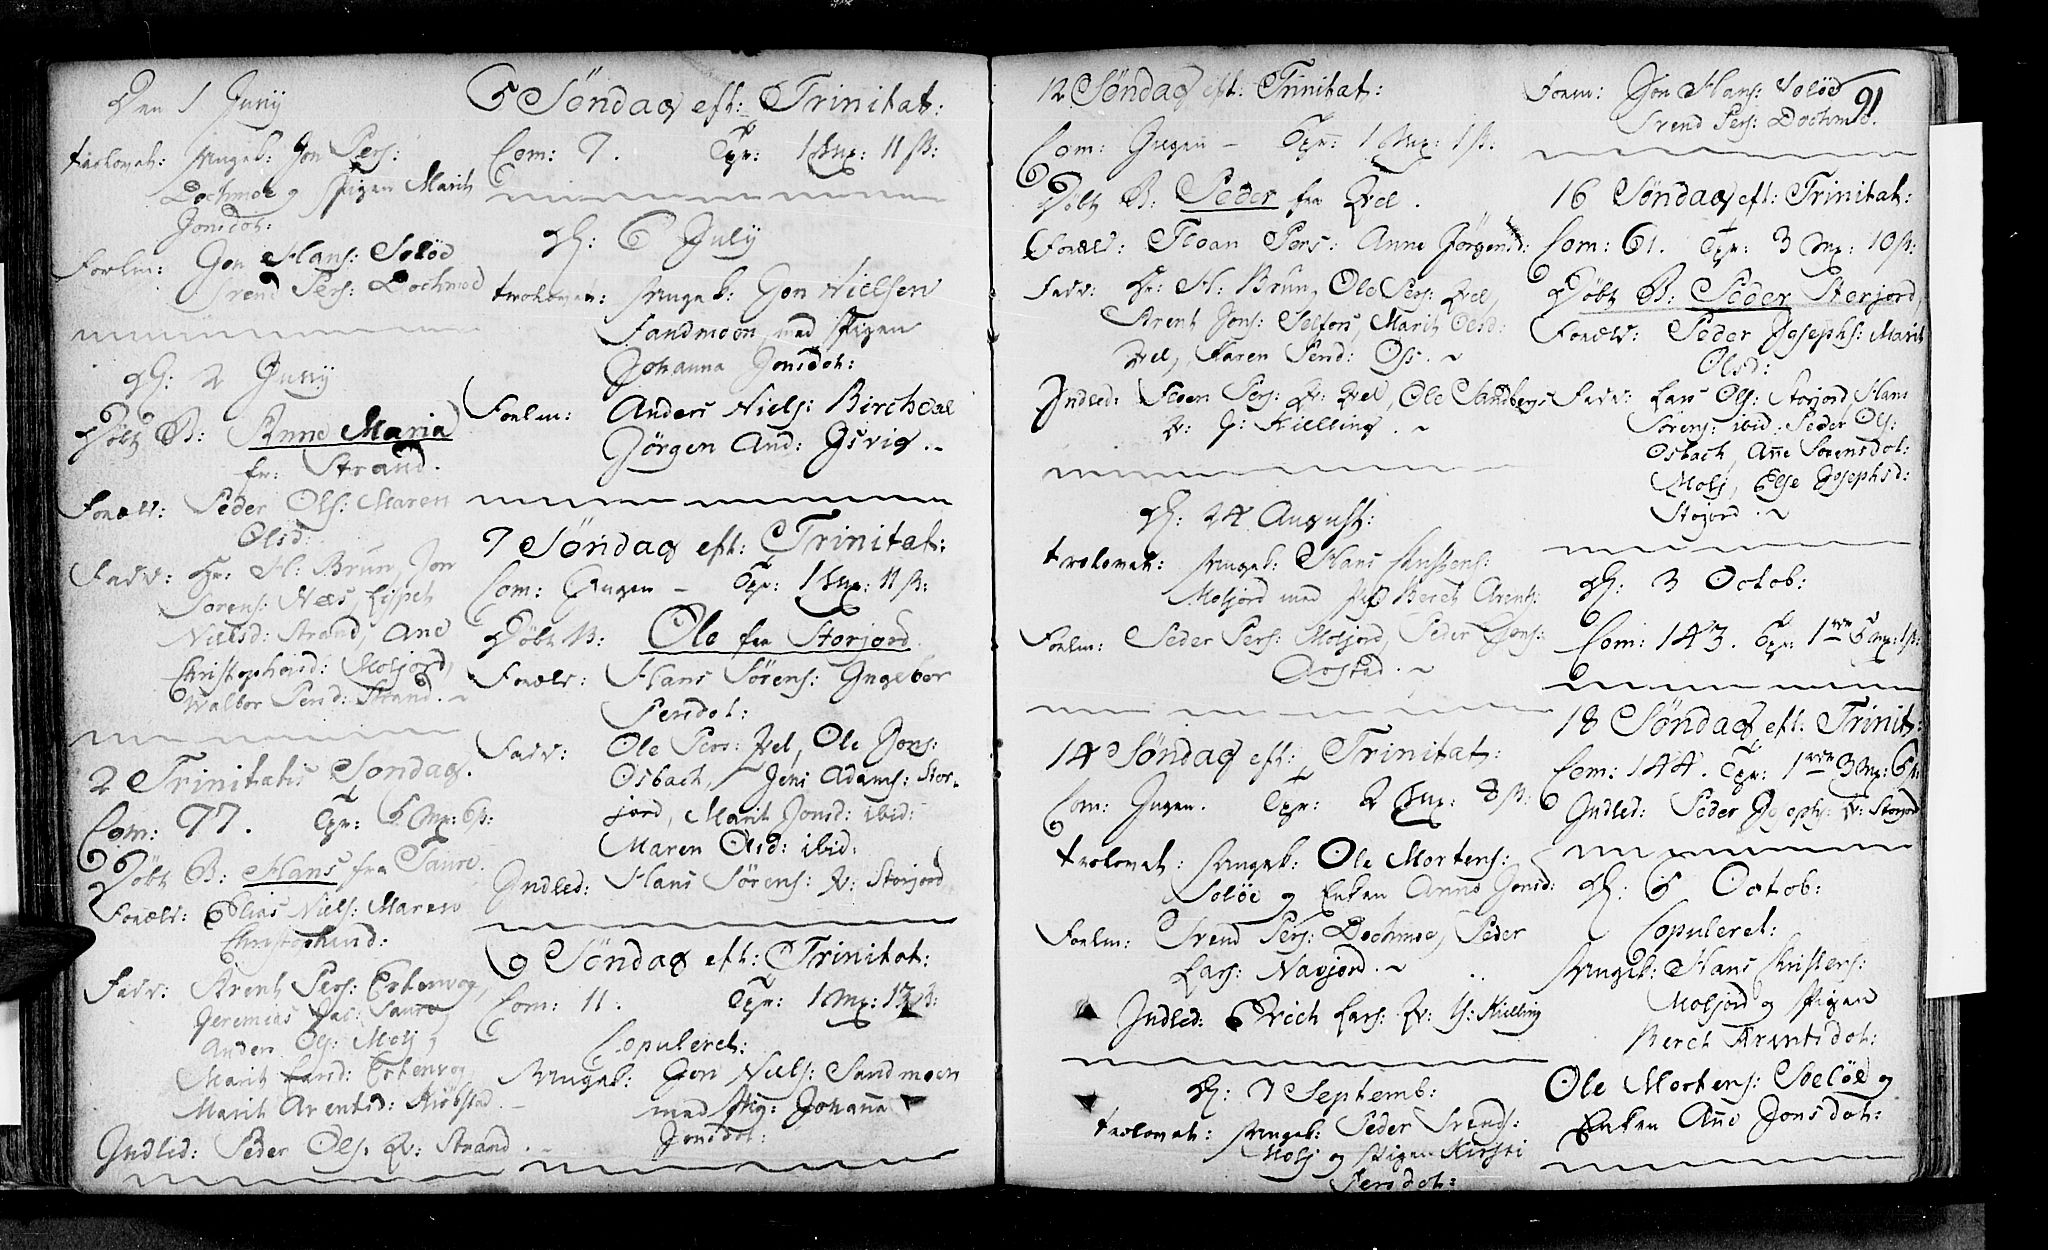 Den 1 Juny
trolovet: Ungek: Jon Pers:
Dochmoe og Pigen Marit
Jonsdot:
Forlm: Jon Hans: Soløe
Svend Pers: Dochmo
d: 2 Juny
Døbt B: Anne Maria
fr: Strand.
Foræld: Peder Ols: Maren
Olsd:
Fadd: Hr: H: Brun, Jon
Sørens: Næs, Lisbet
Nielsd: Strand, Ane
Christophersd: Moljord,
Walbor Persd: Strand.
2 Trinitatis Søndag.
Com: 77. Tfr: 5 Mk: 6 s:
Døbt B: Hans fra Saure.
Foræld: Elias Niels: Maren
Christophersd:
Fadd: Arent Pers: Estenvog,
Jeremias Jac: Saure
Anders Ols: Molj
Marit Larsd: Estenvog
Marit Arentsd: Kiøbstad
Indled: Peder Ols. K: Strand.
5 Søndag eft: Trinitat:
Com: 7. Tfr: 1 Mk: 11 s:
d: 6 July
trolovet: Ungek: Jon Nielsen
Sandmoen, med Pigen
Johanna Jonsdot:
Forlm: Anders Niels: Birchdal
Jörgen And: Isvig.
7 Søndag eft: Trinitat:
Com: Ingen - Tfr: 1 Mk: 11 s:
Døbt B: Ole fra Storjord
Foræld: Hans Sörens: Ingebor
Persdot:
Fadd: Ole Pers: Hel, Ole Jons:
Osbach, Jens Adams: Stor-
jord, Marit Jonsd: ibid:
Maren Olsd: ibid:
Indled: Hans Sörens: K: Storjord
9 Søndag eft: Trinitat:
Com: 11. Tfr: 1 Mk: 13 s:
Copuleret:
Ungek: Jon Niels: Sandmoen
med Pig: Johanna
Jonsdot:
12 Søndag eft: Trinitat:
Com: Ingen - Tfr: 1 Mk: 1 s.
Døbt B: Peder fra Hel.
Foræld: Floan Pers: Anne Jørgensd:
Fadd: Hr: H: Brun, Ole Pers: Hel,
Arent Jons: Selfors, Marit Olsd:
Hel, Karen Persd: Os.
Indled: Floan Pers: K: Hel, Ole Sandbergs
K: G: Kielling.
d: 24 August:
trolovet: Ungek: Hans Christens:
Moljord med Pig: Beret Arents:
Forlm: Peder Pers: Moljord, Peder Jons:
Aastad.
14 Søndag eft: Trinitat:
Com: Ingen. Tfr: 2 Mk: 8 s:
trolovet: Ungek: Ole Mortens:
Soløe og Enken Anne Jonsd:
Forlm: Svend Pers: Dochmoe, Peder
Lars: Navjord.
Indled: Erich Lars: K: Y: Kielling
d: 7 Septemb:
trolovet: Ungek: Peder Svends:
Molj og Pigen Kirsti
Persdot:
91
Forlm: Jon Hans: Soløe
Svend Pers: Dochmo.
16 Søndag eft: Trinitat:
Com: 61. Tfr: 3 Mk: 10 s:
Døbt B: Peder Storjord,
Foræld: Peder Josephs: Marit
Olsd:
Fadd: Lars Ols: Storjord, Hans
Sörens: ibid. Peder Ols:
Osbach, Anne Sörensdot:
Molj, Else Josephsd:
Storjord.
d: 3 Octob:
Com: 143. Tfr: 1 5 Mk: 1 s:
18 Søndag eft: Trinit:
Com: 144. Tfr: 1 3 Mk: 6 s:
Indled: Peder Josephs: K: Storjord
d: 5 Octob:
Copuleret:
Ungek: Hans Christens:
Molsjord og Pigen
Beret Arentsdot:
Ole Mortens: Soeløe og
Enken Anne Jonsdot: